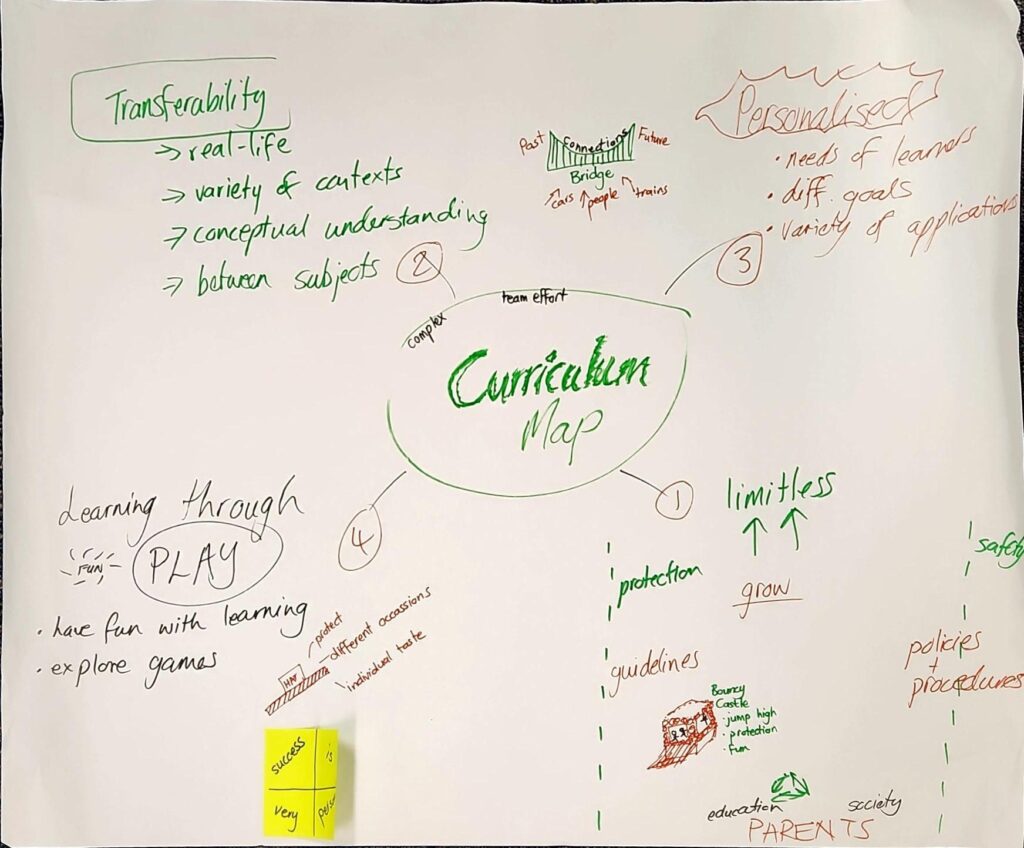 Transferability
→ real-life
→ variety of contexts
→ conceptual understanding
→ between subjects
2
Past
Connections
Future
Bridge
cars
people
trains
Personalised
• needs of learners
• diff. goals
• variety of applications
3
team effort
complex
Curriculum
Map
Learning through
FUN
PLAY
• have fun with learning
• explore games
4
HAT
protect
different occassions
individual taste
success
is
very
1
limitless
grow
protection
guidelines
safety
policies
+
procedures
Bouncy
Castle
• jump high
• protection
• fun
education
society
PARENTS